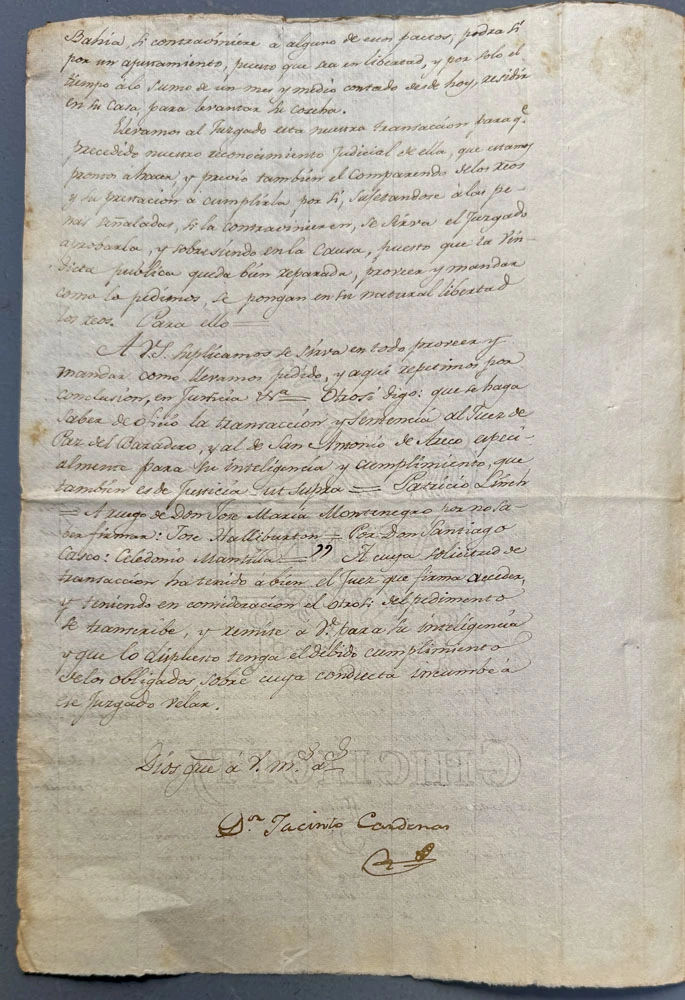 Bahia, si contraviniere á alguno de esos pactos; podrá sí
por un ajustamiento, puesto que sea en libertad, y por solo el
tiempo alo sumo de un mes y medio contado desde hoy, residir
en su Casa, para levantar su cosecha.
Elevamos al Juzgado esta nuestra transaccion, para q.e
precedido nuestro reconocimiento Judicial de ella, que estamos
prontos a hacer, y previo tambien el Comparendo delos reos
y su prestacion á cumplirla, por si, sujetandose á las pe-
nas señaladas, si la contravinieren, se sirva el Juzgado
aprobarla, y sobreseiendo en la Causa, puesto que la Vin-
dicta publica queda bien reparada, proveer y mandar
como lo pedimos, se pongan en su natural libertad
los reos. Para ello =
A V.S. Suplicamos se sirva en todo proveer y
mandar como llevamos pedido, y aqui repetimos por
conclusion, en Justicia = Otrosí digo: que se haga
saber de oficio la transaccion y Sentencia al Juez de
Paz del Baradero, y al de San Antonio de Areco, especi-
almente para su inteligencia y cumplimiento, que
tambien es de Justicia ut supra = Patricio Linch
= A ruego de Don Jose Maria Montenegro por no sa-
ber firmar: Jose Halliburton = Por Don Santiago
Casco: Celedonio Mansilla = " A cuya solicitud de
transaccion ha tenido abien el Juez que firma acceder,
y teniendo en consideracion el Otrosi del pedimento
se transcribe, y remite a V. para su inteligencia
y que lo dispuesto tenga el debido cumplimiento
delos obligados, sobre cuya conducta incumbe á
ese Juzgado velar.
Dios gue a V. m.s a.s
D.or Jacinto Cardenas
CHIGIOTTI